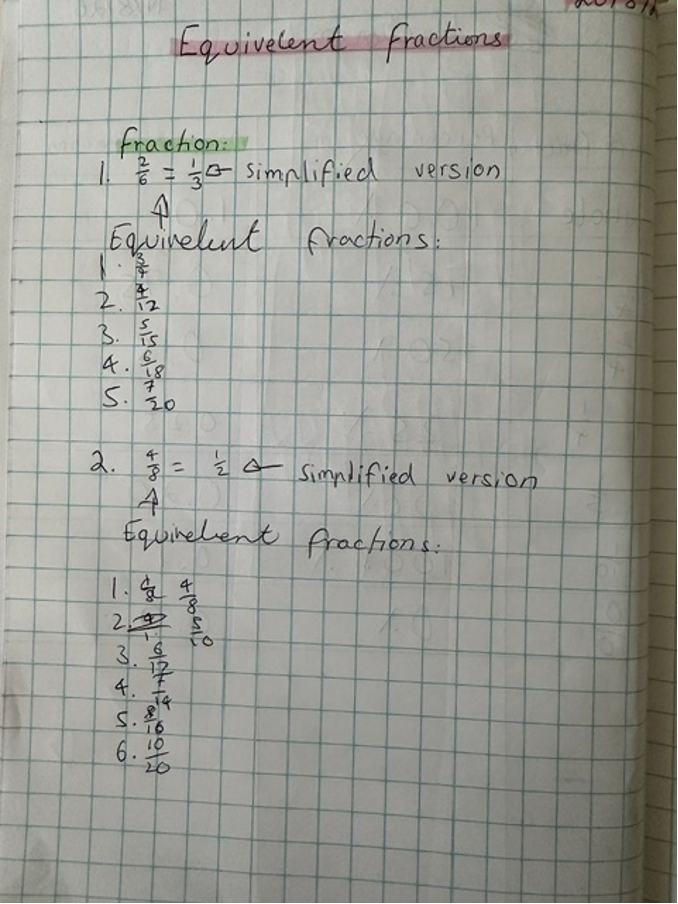 Equivelent fractions
fraction:
1. 2/6 = 1/3 ← simplified version
↑
Equivelent fractions:
1. 3/7
2. 4/12
3. 5/15
4. 6/18
5. 7/20
2. 4/8 = 1/2 ← simplified version
↑
Equivelent fractions:
1. 4/8 4/8
2. 5/10
3. 6/12
4. 7/14
5. 8/16
6. 10/20